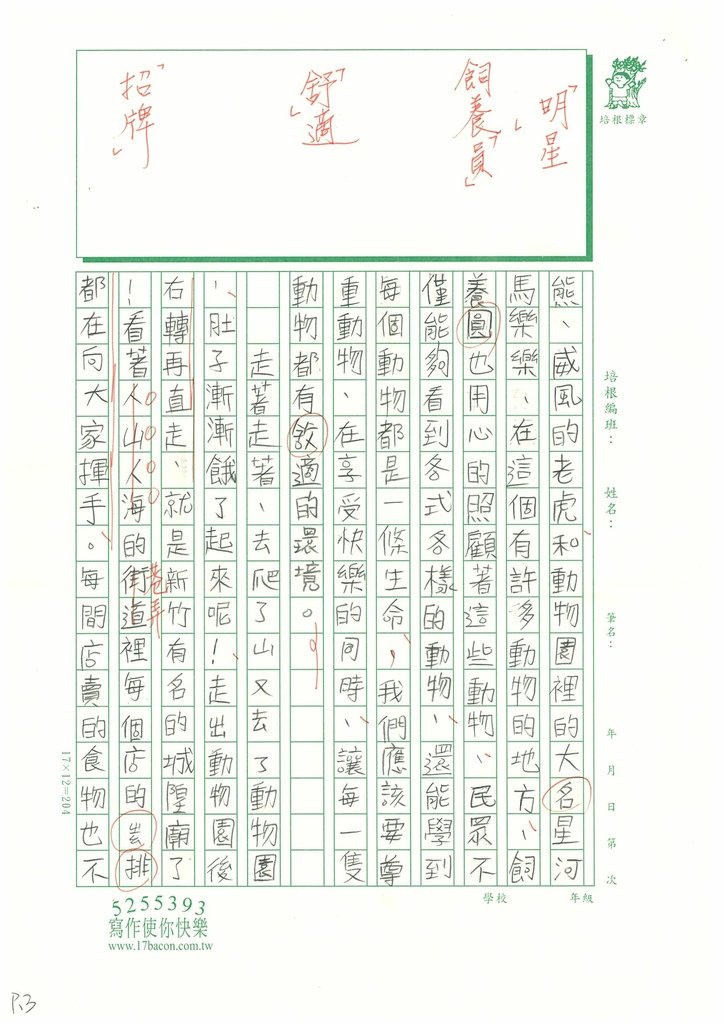 「明星」
飼養「員」
「舒」適
「招牌」
培根標章
培根編班：
姓名：
筆名：
年 月 日 第 次
熊、威風的老虎和動物園裡的大名星河
馬樂樂、在這個有許多動物的地方，飼
養圓也用心的照顧著這些動物，民眾不
僅能夠看到各式各樣的動物，還能學到
每個動物都是一條生命，我們應該要尊
重動物、在享受快樂的同時，讓每一隻
動物都有適的環境。
走著走著、去爬了山又去了動物園
，肚子漸漸餓了起來呢！走出動物園後
右轉再直走、就是新竹有名的城隍廟了
！看著人山人海的街道裡每個店的排
巷弄
都在向大家揮手。每間店賣的食物也不
17×12=204
學校
年級
5255393
寫作使你快樂
www.17bacon.com.tw
P.3